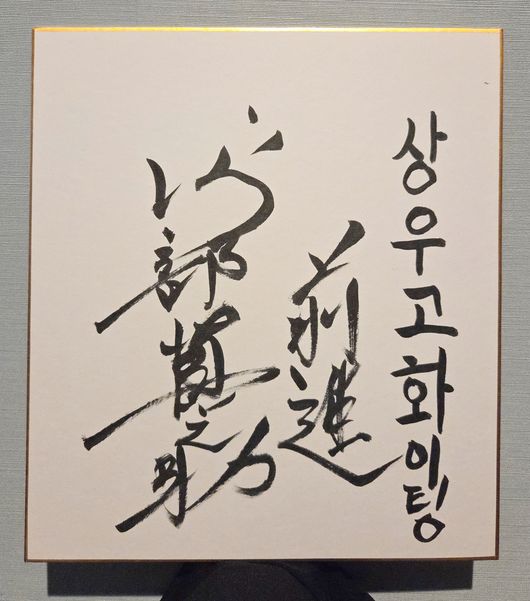 상우고화이팅
前進
阿部慎之助